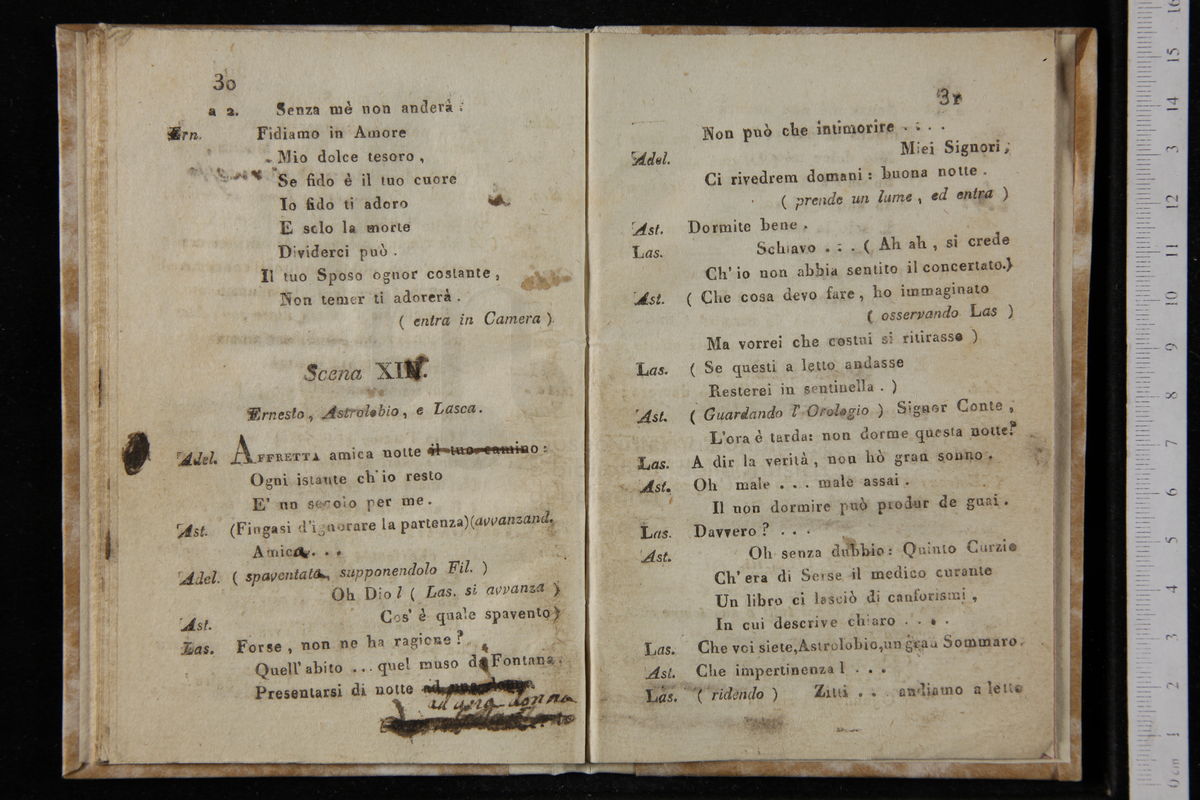 30
a 2. Senza mè non anderà :
Ern. Fidiamo in Amore
Mio dolce tesoro ,
Se fido è il tuo cuore
Io fido ti adoro
E solo la morte
Dividerci può .
Il tuo Sposo ognor costante ,
Non temer ti adorerà .
( entra in Camera )
Scena
Ernesto , Astrolobio , e Lasca .
Adel. AFFRETTA amica notte il tuo camino :
Ogni istante ch'io resto
E' un secolo per me .
Ast. (Fingasi d'ignorare la partenza)(avvanzand.
Amica . . .
Adel. ( spaventata , supponendolo Fil. )
Oh Dio ! ( Las. si avvanza )
Ast. Cos' è quale spavento )
Las. Forse , non ne ha ragione ?
Quell' abito . . . quel muso da Fontana .
Presentarsi di notte
ad una donna
31
Non può che intimorire . . . .
Adel. Miei Signori ,
Ci rivedrem domani : buona notte .
( prende un lume , ed entra )
Ast. Dormite bene .
Las. Schiavo . . . ( Ah ah , si crede
Ch' io non abbia sentito il concertato.)
Ast. ( Che cosa devo fare , ho immaginato
( osservando Las )
Ma vorrei che costui si ritirasse )
Las. ( Se questi a letto andasse
Resterei in sentinella . )
Ast. ( Guardando l' Orologio ) Signor Conte ,
L'ora è tarda: non dorme questa notte?
Las. A dir la verità , non hò gran sonno .
Ast. Oh male . . . male assai .
Il non dormire può produr de guai .
Las. Davvero ? . . .
Ast. Oh senza dubbio : Quinto Curzio
Ch' era di Serse il medico curante
Un libro ci lasciò di canforismi ,
In cui descrive chiaro . . . .
Las. Che voi siete,Astrolobio,un gran Sommaro .
Ast. Che impertinenza ! . . .
Las. ( ridendo ) Zitti . . . andiamo a letto